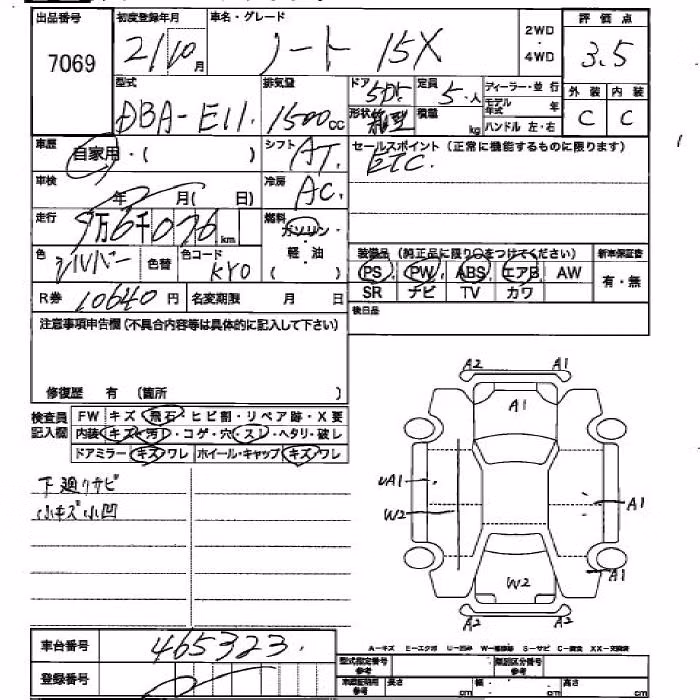 出品番号 初度登録年月 車名・グレード 2WD・4WD 評価点
7069 21/10月 ノート 15X 3.5
型式 排気量 ドア 5D 定員 5人 ディーラー・並行 外装 内装
DBA-E11 1500cc 形状 箱型 積載 kg モデル年式 年 C C
ハンドル 左・右
車歴 自家用・( ) シフト AT セールスポイント (正常に機能するものに限ります)
ETC.
車検 年 月( 日) 冷房 AC.
走行 9万6千076km 燃料 ガソリン・軽油 ( )
色 シルバー 色替 色コード KY0 装備品 (純正品に限り○をつけてください) 新車保証書
PS PW ABS エアB AW 有・無
R券 10640円 名変期限 月 日 SR ナビ TV カワ
後日品
注意事項申告欄(不具合内容等は具体的に記入して下さい)
修復歴 有 (箇所 )
検査員記入欄 FW キズ・飛石・ヒビ割・リペア跡・X要
内装 キズ・汚れ・コゲ・穴・スレ・ヘタリ・破レ
ドアミラー キズ・ワレ ホイール・キャップ キズ・ワレ
下廻りサビ
小キズ小凹
A2 A1
A1
UA1
W2 A1
A1
W2
A2 A2
A-キズ E-エクボ U-凹み W-補修跡 S-サビ C-腐食 XX-交換済
車台番号 465323.
登録番号
型式指定番号 参考 類別区分番号 参考
長さ cm 幅 cm 高さ cm